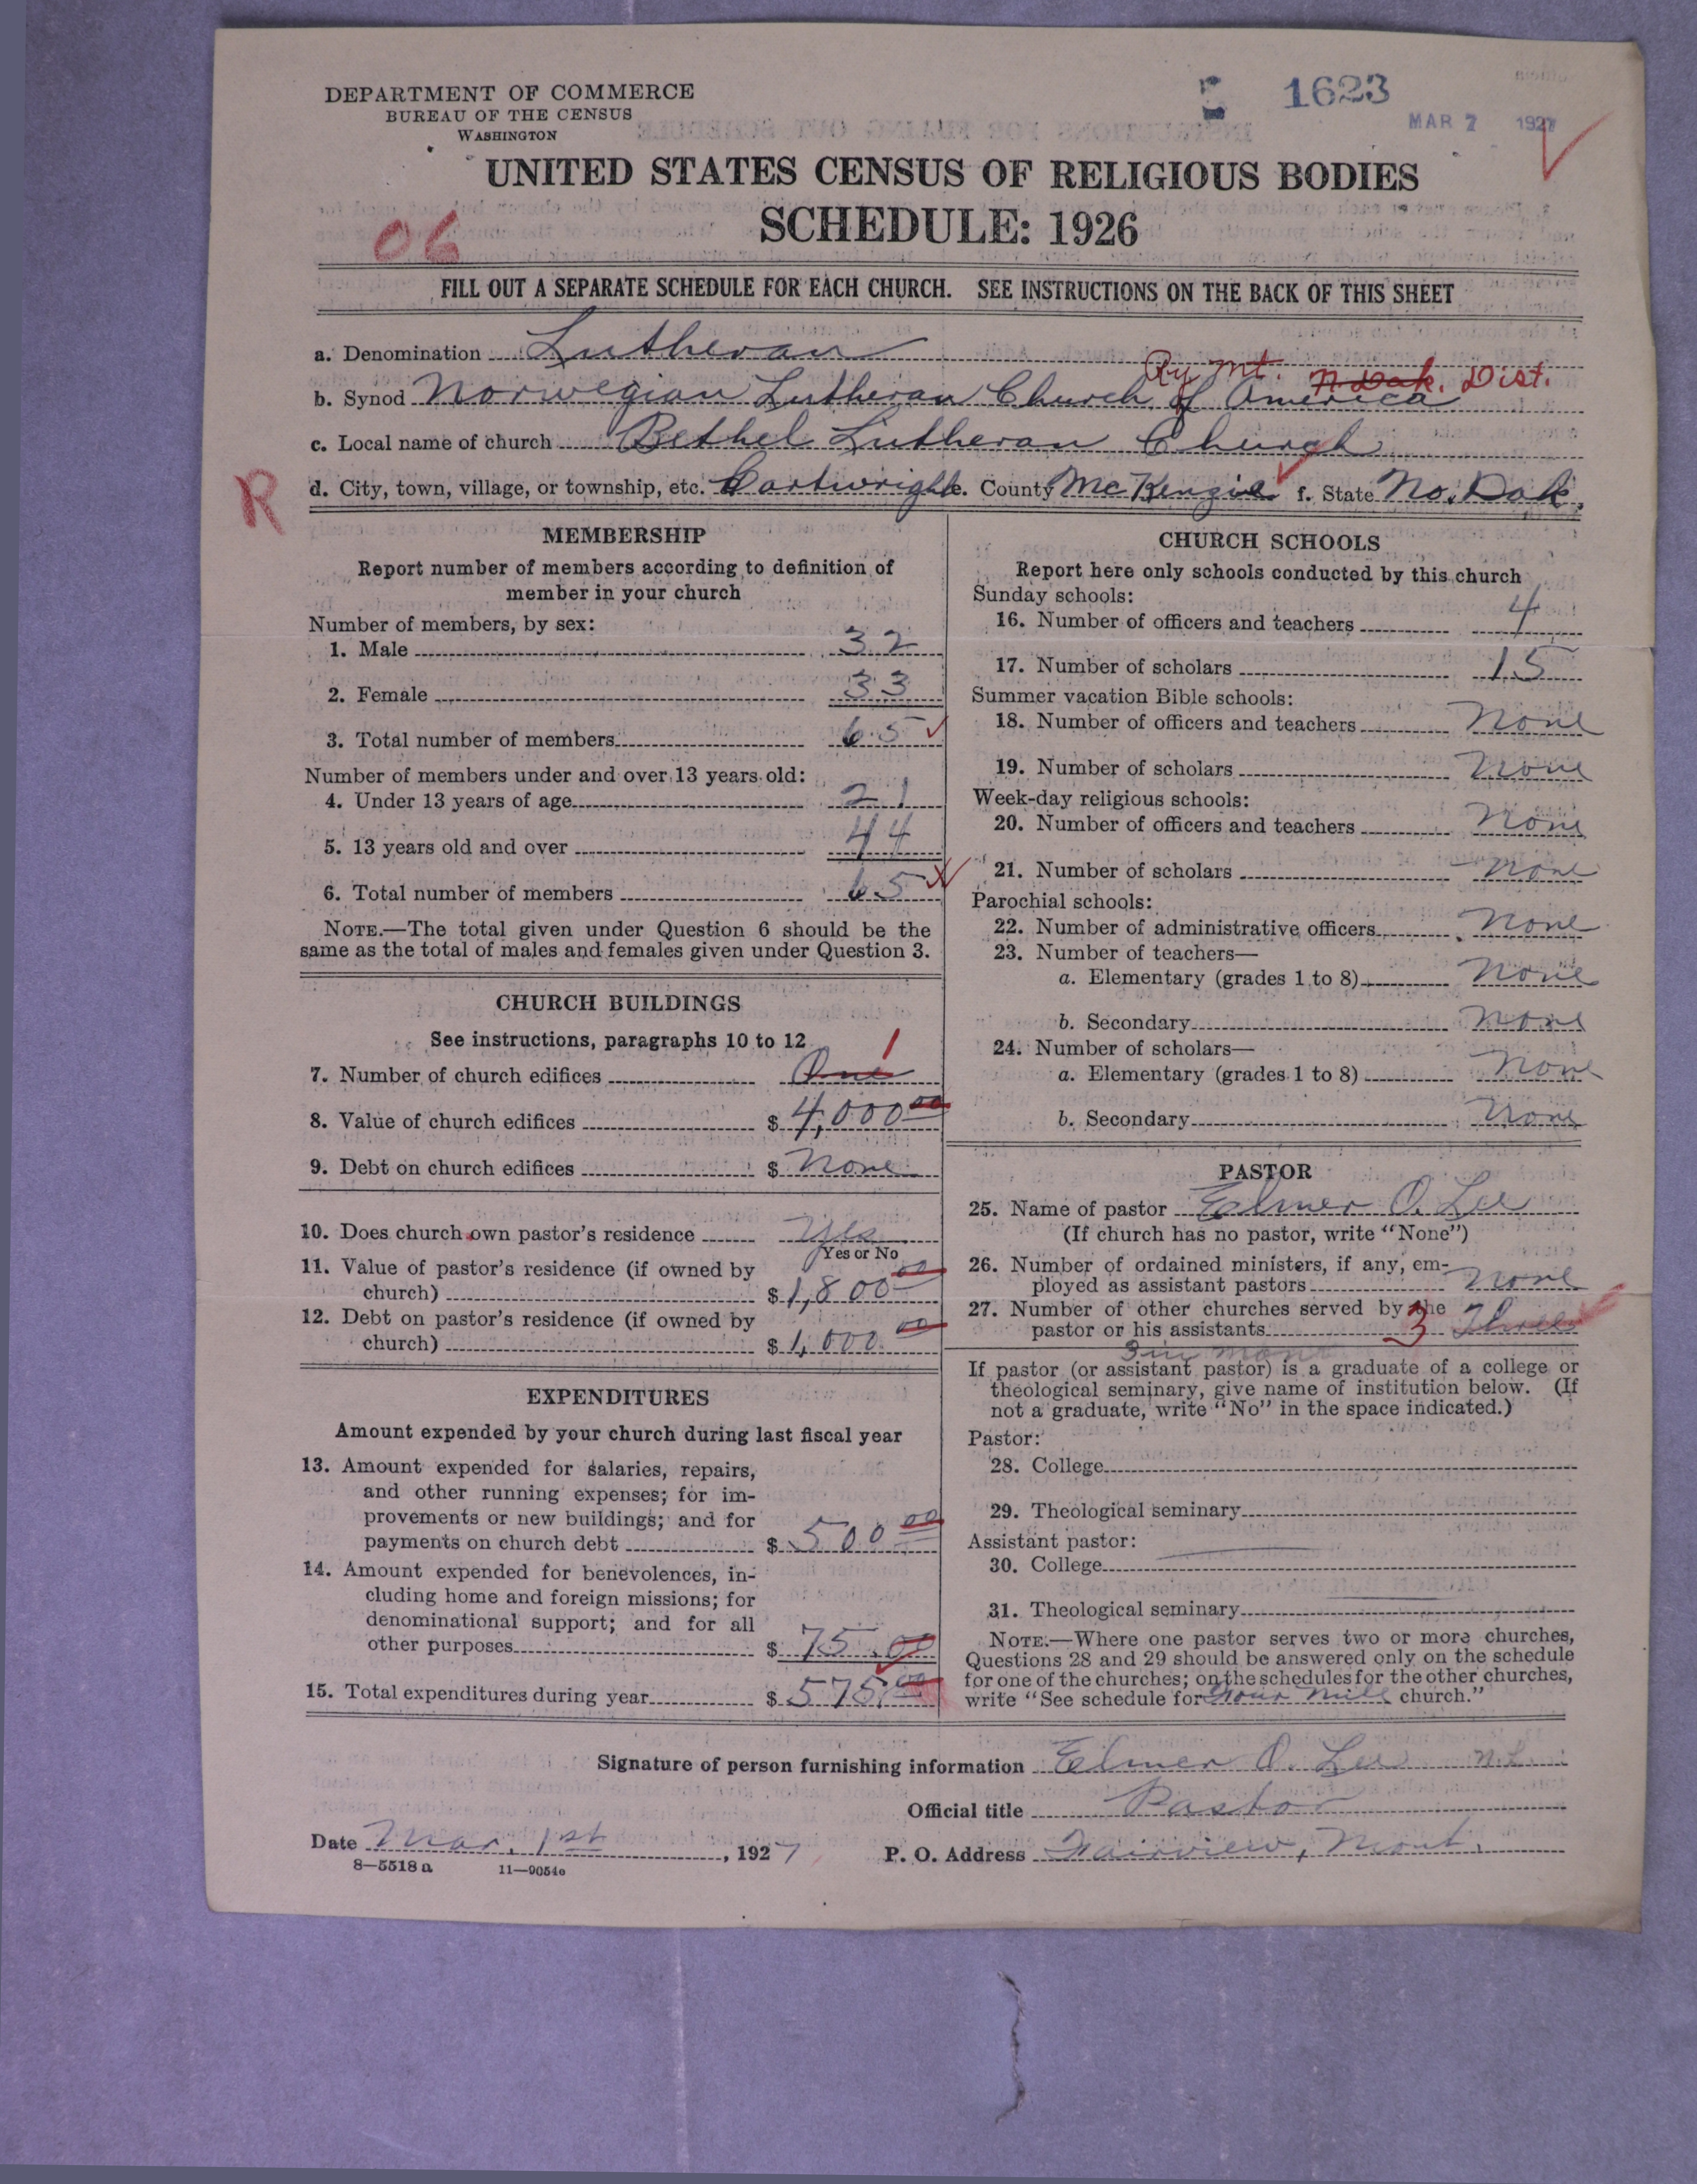 DEPARTMENT OF COMMERCE
BUREAU OF THE CENSUS
WASHINGTON
1623
MAR 7 1927
UNITED STATES CENSUS OF RELIGIOUS BODIES
SCHEDULE: 1926
06
FILL OUT A SEPARATE SCHEDULE FOR EACH CHURCH. SEE INSTRUCTIONS ON THE BACK OF THIS SHEET
a. Denomination Lutheran
Ry Mt. N. Dak. Dist.
b. Synod Norwegian Lutheran Church of America
c. Local name of church Bethel Lutheran Church
R
d. City, town, village, or township, etc. Cartwright e. County McKenzie f. State No. Dak.
MEMBERSHIP
Report number of members according to definition of
member in your church
Number of members, by sex:
1. Male 32
2. Female 33
3. Total number of members 65
Number of members under and over 13 years old:
4. Under 13 years of age 21
5. 13 years old and over 44
6. Total number of members 65
NOTE.—The total given under Question 6 should be the
same as the total of males and females given under Question 3.
CHURCH BUILDINGS
See instructions, paragraphs 10 to 12
7. Number of church edifices One 1
8. Value of church edifices $ 4,000 00
9. Debt on church edifices $ None
10. Does church own pastor's residence Yes
Yes or No
11. Value of pastor's residence (if owned by
church) $ 1,800 00
12. Debt on pastor's residence (if owned by
church) $ 1,000 00
EXPENDITURES
Amount expended by your church during last fiscal year
13. Amount expended for salaries, repairs,
and other running expenses; for im-
provements or new buildings; and for
payments on church debt $ 500 00
14. Amount expended for benevolences, in-
cluding home and foreign missions; for
denominational support; and for all
other purposes $ 75.00
15. Total expenditures during year $ 575.00
CHURCH SCHOOLS
Report here only schools conducted by this church
Sunday schools:
16. Number of officers and teachers 4
17. Number of scholars 15
Summer vacation Bible schools:
18. Number of officers and teachers None
19. Number of scholars None
Week-day religious schools:
20. Number of officers and teachers None
21. Number of scholars None
Parochial schools:
22. Number of administrative officers None
23. Number of teachers—
a. Elementary (grades 1 to 8) None
b. Secondary None
24. Number of scholars—
a. Elementary (grades 1 to 8) None
b. Secondary None
PASTOR
25. Name of pastor Elmer O. Lee
(If church has no pastor, write "None")
26. Number of ordained ministers, if any, em-
ployed as assistant pastors None
27. Number of other churches served by the
pastor or his assistants 3 Three
3 in Mont
If pastor (or assistant pastor) is a graduate of a college or
theological seminary, give name of institution below. (If
not a graduate, write "No" in the space indicated.)
Pastor:
28. College
29. Theological seminary
Assistant pastor:
30. College
31. Theological seminary
NOTE.—Where one pastor serves two or more churches,
Questions 28 and 29 should be answered only on the schedule
for one of the churches; on the schedules for the other churches,
write "See schedule for Four Mile church."
Signature of person furnishing information Elmer O. Lee
Official title Pastor
Date Mar. 1st, 1927 P. O. Address Fairview, Mont.
8—5518 a 11—9054c